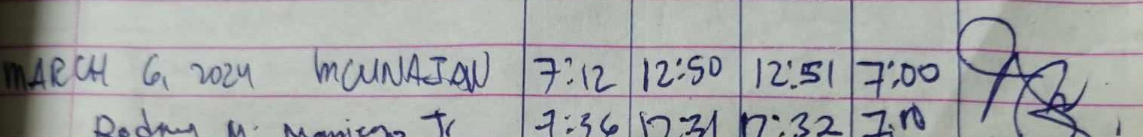 MARCH 6, 2024 7:12 12:50 12:51 7:00
Rodney M. Jr 7:36 12:31 12:32 7:10